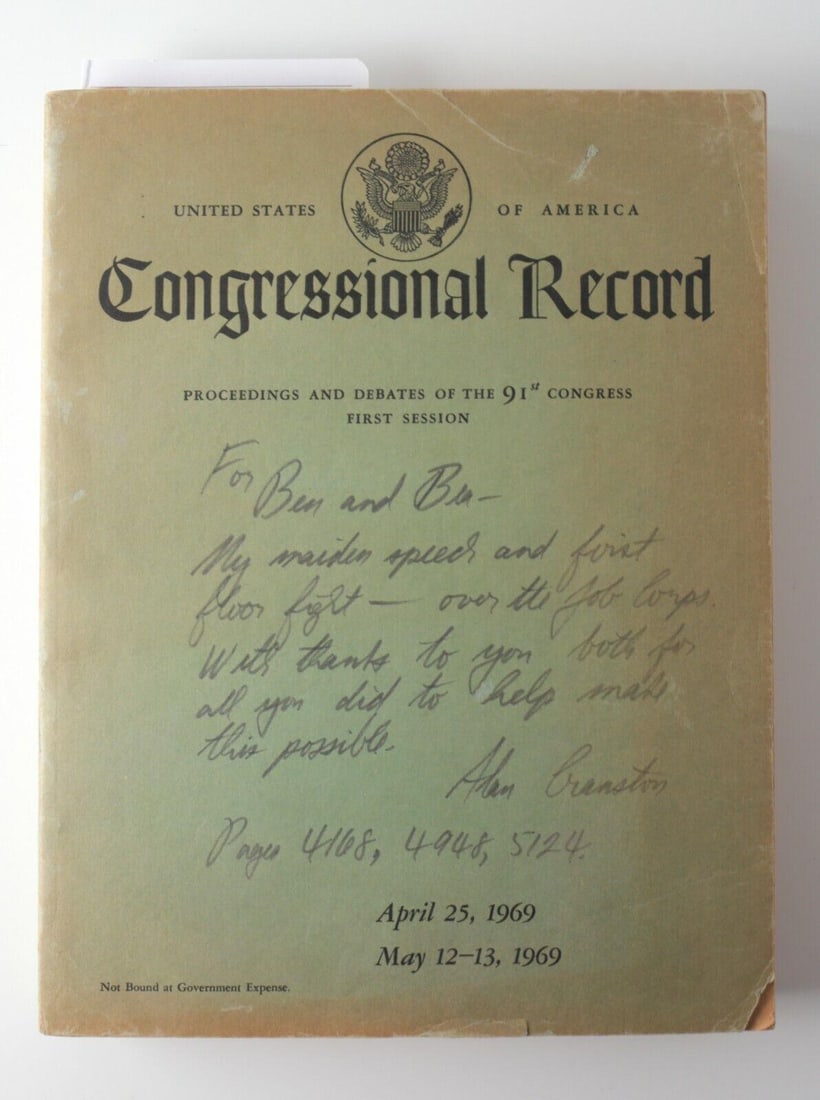 UNITED STATES OF AMERICA
Congressional Record
PROCEEDINGS AND DEBATES OF THE 91st CONGRESS
FIRST SESSION
For Ben and Bea—
My maiden speech and first
floor fight — over the Job Corps.
With thanks to you both for
all you did to help make
this possible.
Alan Cranston
Pages 4168, 4948, 5124.
April 25, 1969
May 12–13, 1969
Not Bound at Government Expense.